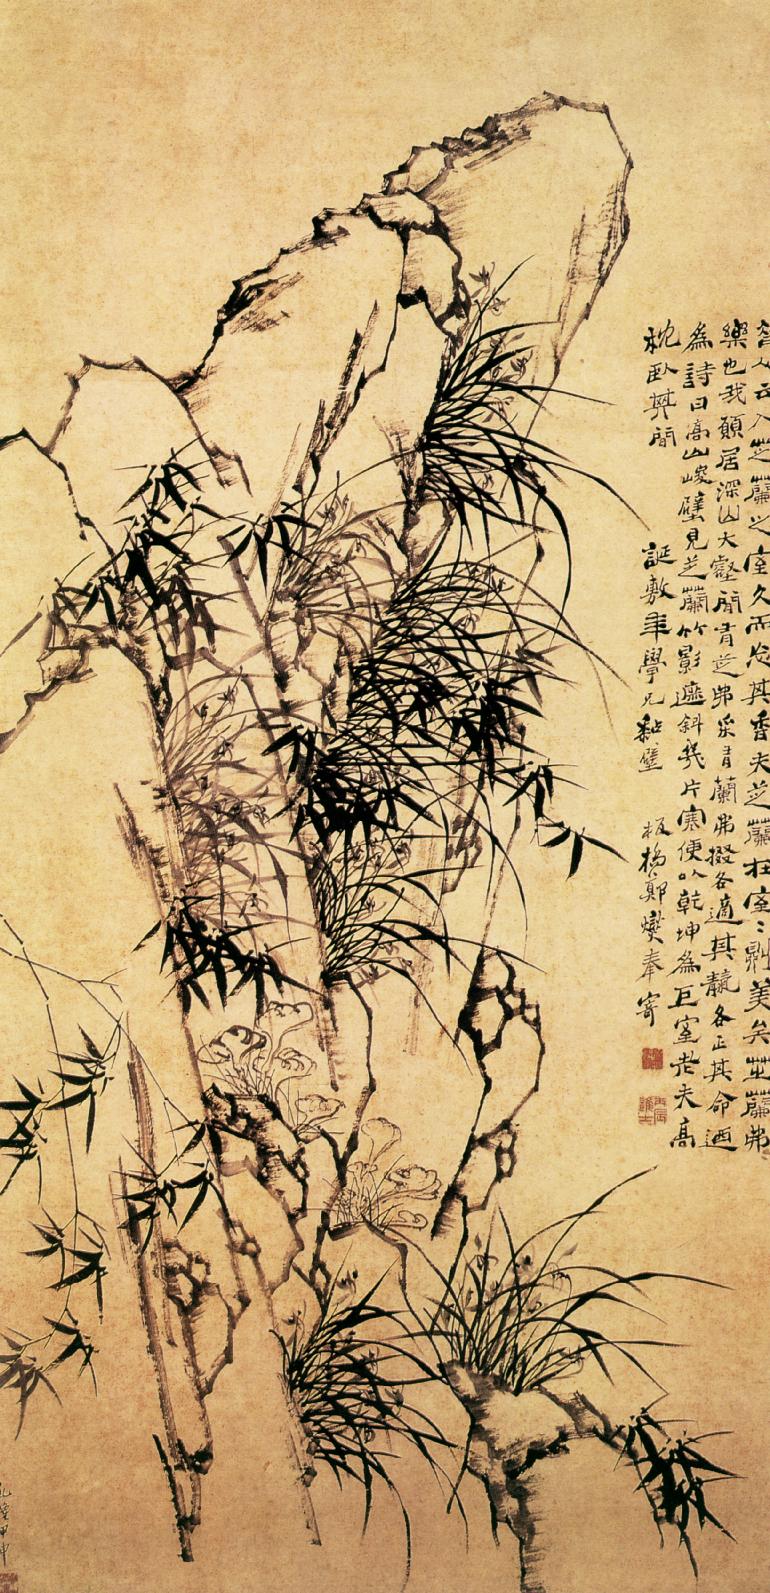 昔人云入芝蘭之室久而忘其香夫芝蘭在室〻則美矣芝蘭弗
樂也我願居深山大壑間有芝弗采有蘭弗掇各適其□各正其命迺
為詩曰高山峻壁見芝蘭竹影遮斜幾片寒便以乾坤為巨室老夫高
枕臥其間
誕敷年學兄黏壁
板橋鄭燮奉寄
乾隆甲申